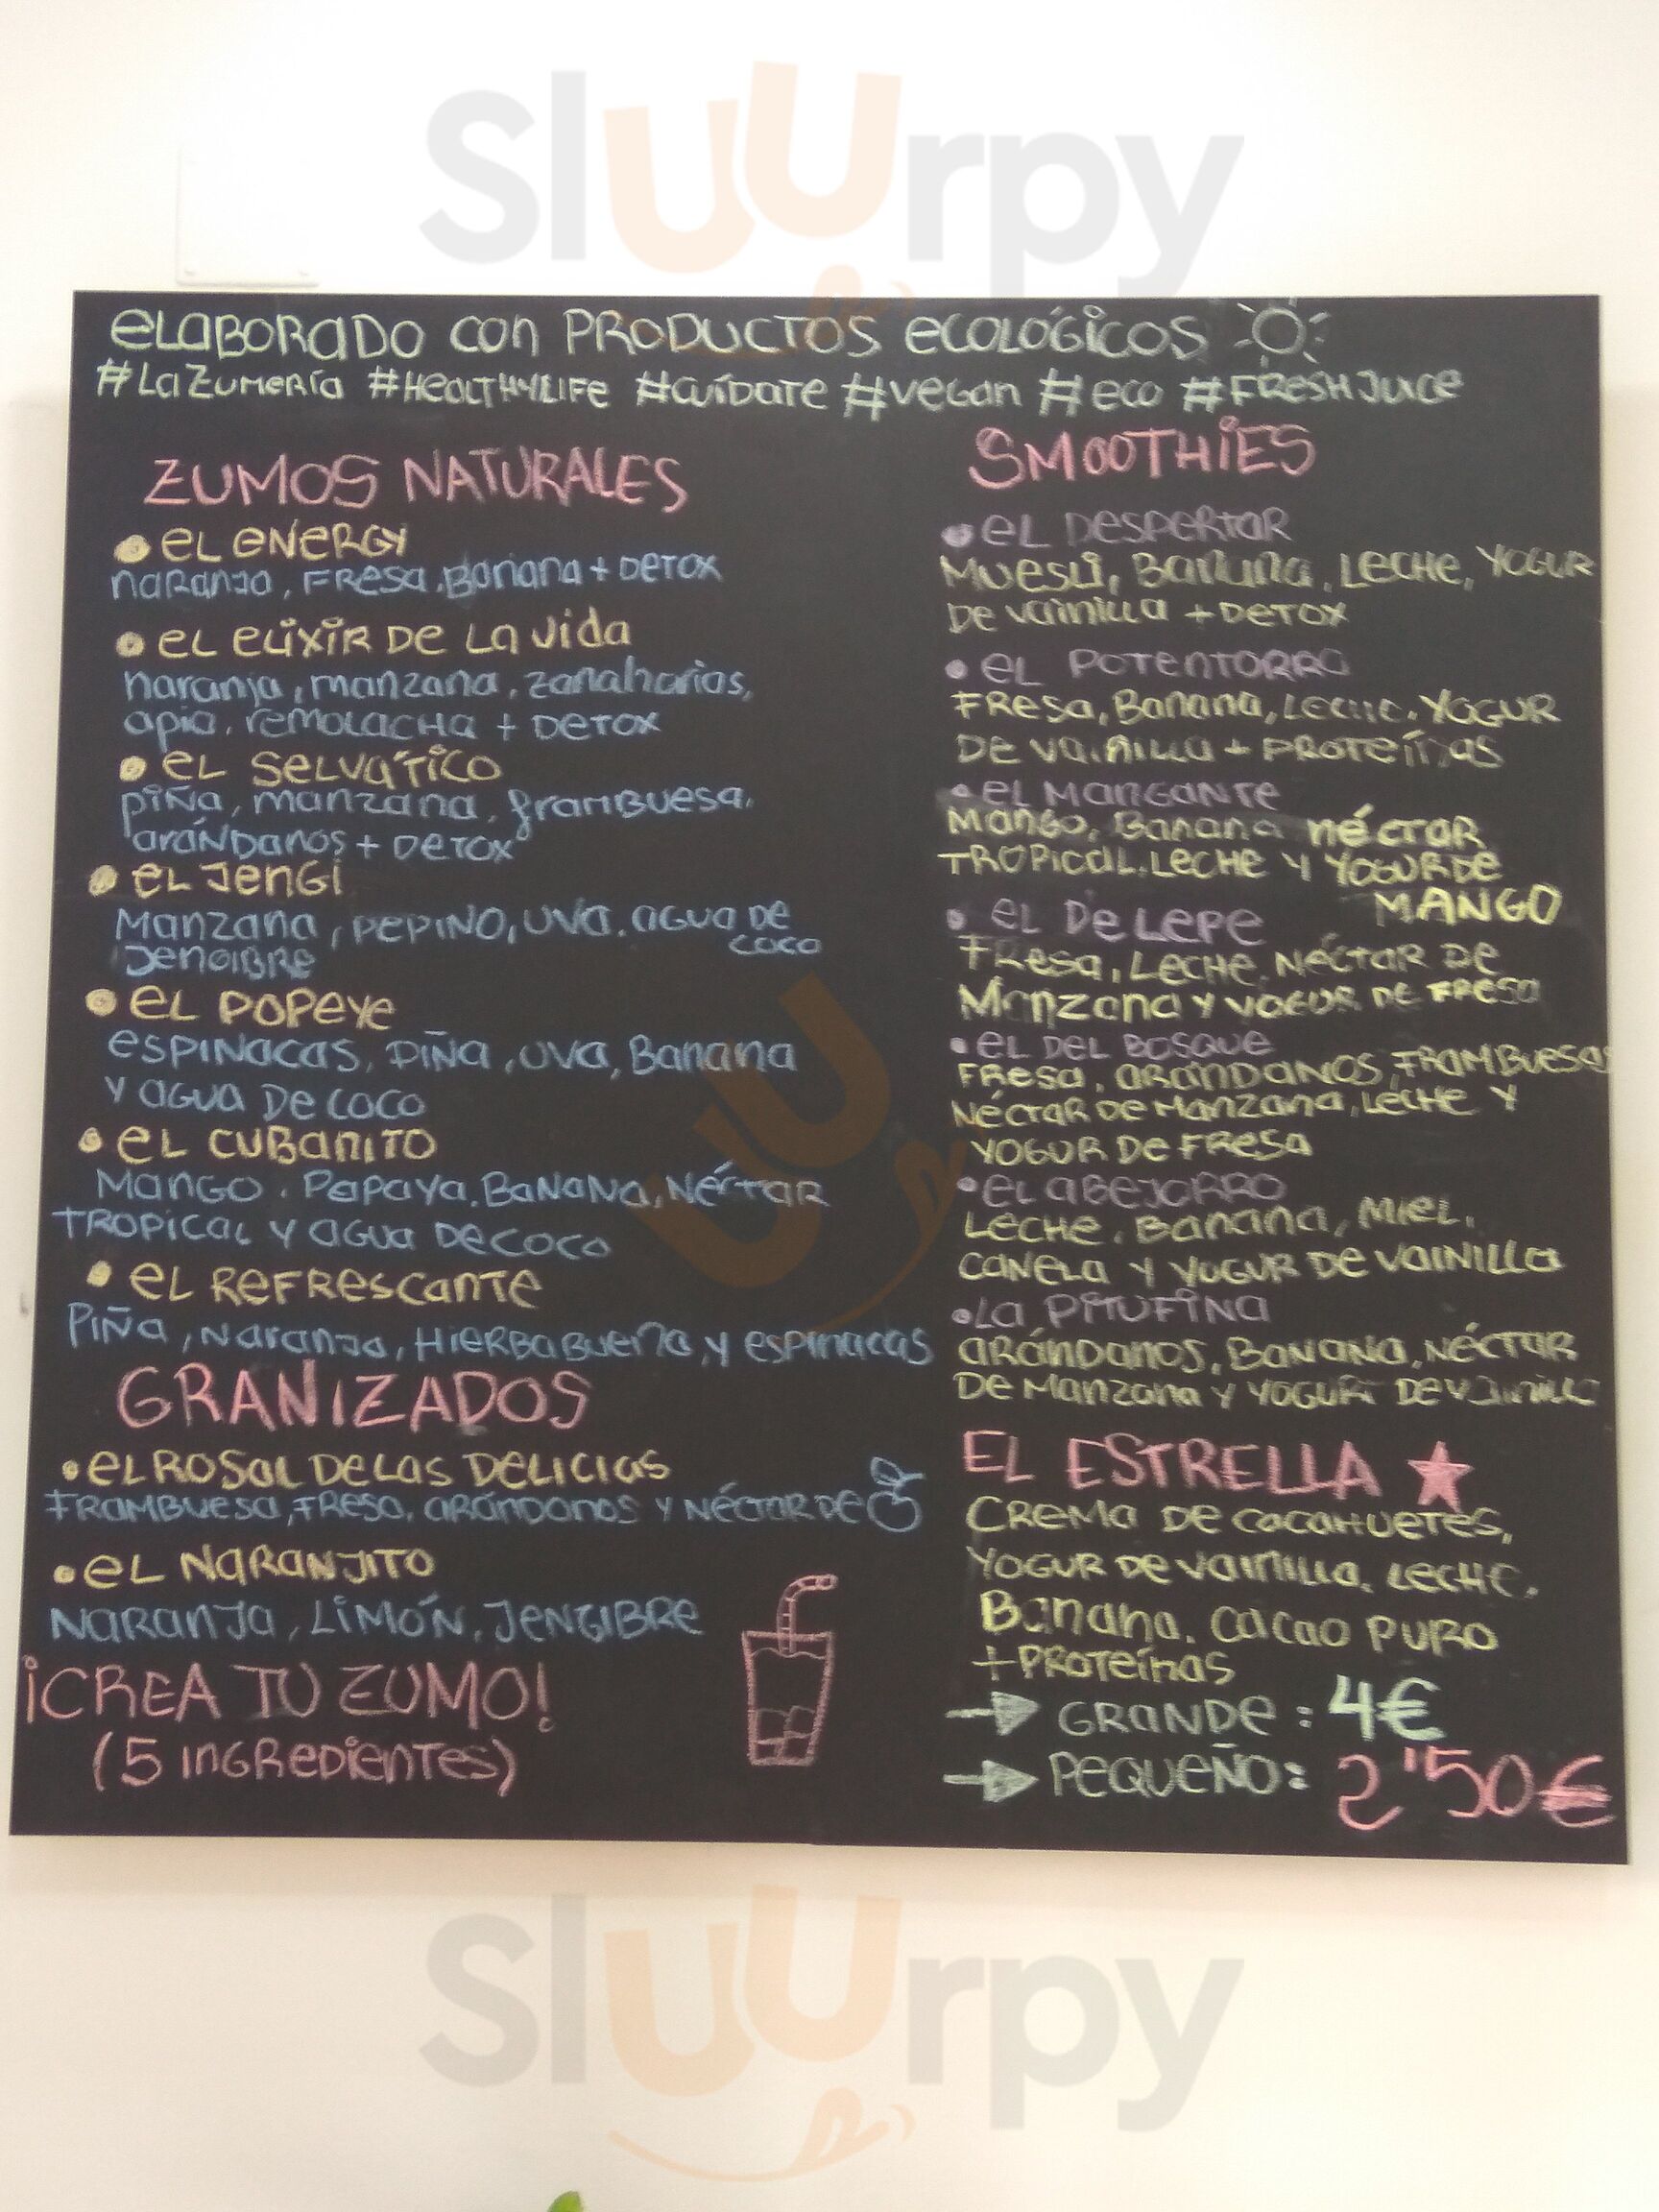 Sluurpy
elaborado con productos ecológicos
#LaZumería #Healthylife #cuídate #vegan #eco #Freshjuice
ZUMOS NATURALES
• el energy
naranja, fresa, Banana + Detox
• el elixir de la vida
naranja, manzana, zanahorias,
apio, remolacha + Detox
• el selvático
piña, manzana, frambuesa,
arándanos + Detox
• el jengi
Manzana, pepino, uva, agua de
coco
jengibre
• el popeye
espinacas, piña, uva, Banana
y agua de coco
• el cubanito
Mango, Papaya, Banana, néctar
tropical y agua de coco
• el refrescante
Piña, naranja, hierbabuena y espinacas
GRANIZADOS
• el rosal de las delicias
Frambuesa, fresa, arándanos y néctar de
• el naranjito
naranja, limón, jengibre
¡CREA TU ZUMO!
(5 ingredientes)
SMOOTHIES
• el despertar
Muesli, Banana, leche, yogur
de vainilla + Detox
• el potentorro
Fresa, Banana, leche, yogur
de vainilla + proteínas
• el mangante
Mango, Banana néctar
tropical, leche y yogur de
MANGO
• el De Lepe
Fresa, leche, néctar de
Manzana y yogur de fresa
• el del bosque
Fresa, arándanos, frambuesas
néctar de manzana, leche y
yogur de fresa
• el abejorro
leche, Banana, miel,
canela y yogur de vainilla
• la pitufina
arándanos, Banana, néctar
de manzana y yogurt de vainilla
EL ESTRELLA ★
Crema de cacahuetes,
yogur de vainilla, leche,
Banana, cacao puro
+ proteínas
→ GRANDE: 4€
→ PEQUEÑO: 2'50€
Sluurpy